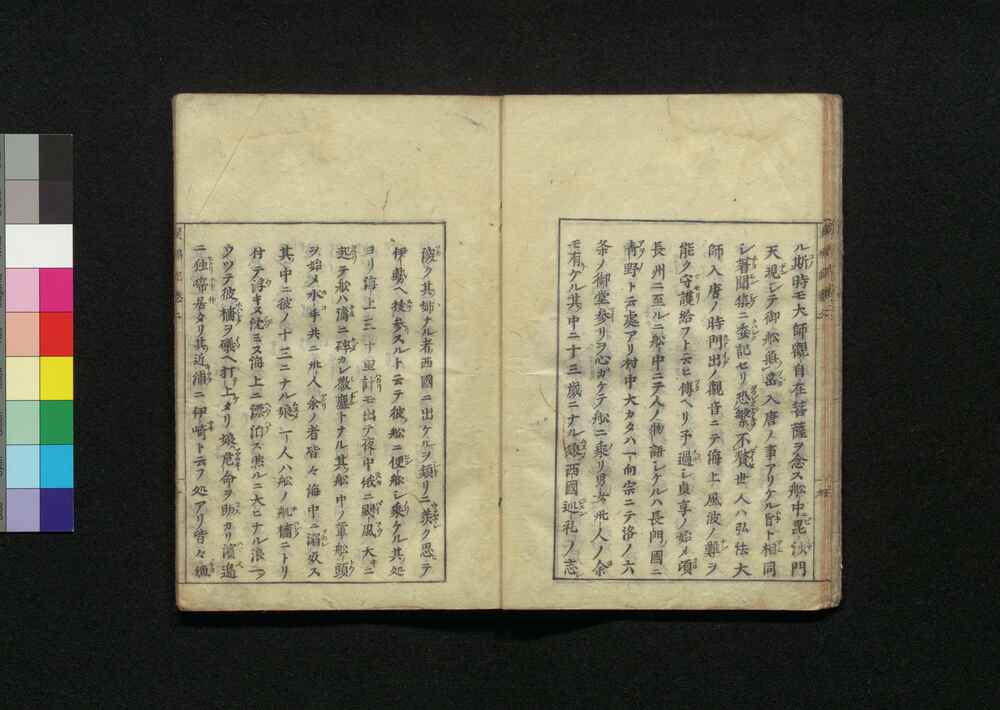 ル斯時モ大師觀自在菩薩ヲ念ス船中毘沙門
天現シテ御船無恙入唐ノ事アリケル旨ト相同
シ著聞集ニ委記セリ恐繁不贅世人ハ弘法大
師入唐ノ時門出ノ觀音ニテ海上風波ノ難ヲ
能ク守護給フト云ヒ傳ヘリ予過シ貞享ノ始メ頃
長州ニ至ルニ船中ニテ人ノ物語シケルハ長門國ニ
青野ト云處アリ村中大カタハ一向宗ニテ洛ノ六
条ノ御堂参リヲ心カケテ舩ニ乘リ男女卅人ノ余
モ有ケル其中ニ十三歳ニナル娘西國巡礼ノ志
深ク其姉ナル者西國ニ出ケルヲ頻リニ羨ク思テ
伊勢ヘ抜参スルト云テ彼舩ニ便船シ乘ケル其処
ヨリ海上三十里計モ出テ夜中俄ニ颶風大ニ
起テ舩ハ濤ニ碎カレ微塵トナル其舩中ノ輩船頭
ヲ始メ水手共ニ卅人余ノ者皆々海中ニ溺歿ス
其中ニ彼ノ十三ニナル娘一人ハ舩ノ帆檣ニトリ
付テ浮キヌ沈ミヌ海上ニ漂泊ス然ルニ大ヒナル浪一ツ
ウツテ彼檣ヲ礒ヘ打上タリ娘危命ヲ助カリ濱邉
ニ独啼居タリ其近浦ニ伊崎ト云フ処アリ皆々漁